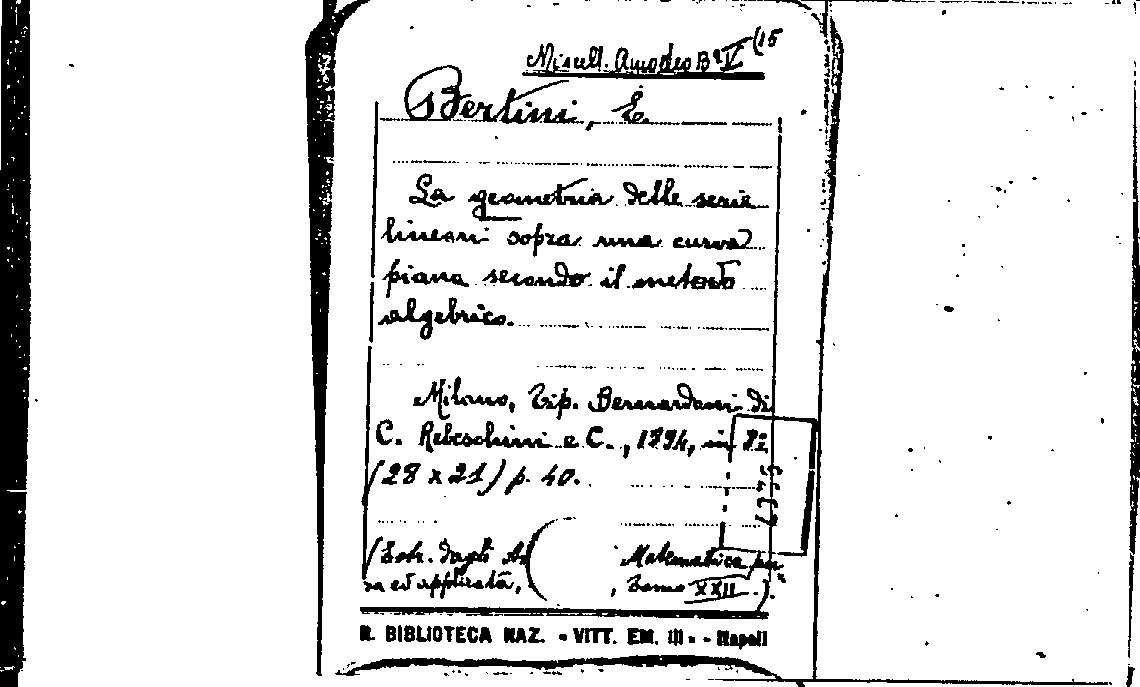 Miscell. Amodeo Bª V (15
Bertini, E.
La geometria delle serie
lineari sopra una curva
piana secondo il metodo
algebrico.
Milano, Tip. Bernardoni di
C. Rebeschini e C., 1894, in 8º
(28 x 21) p. 40.
(Estr. dagli An Matematica pu
ra ed applicata, , Tomo XXII.).
R. BIBLIOTECA NAZ. - VITT. EM. III - - Napoli